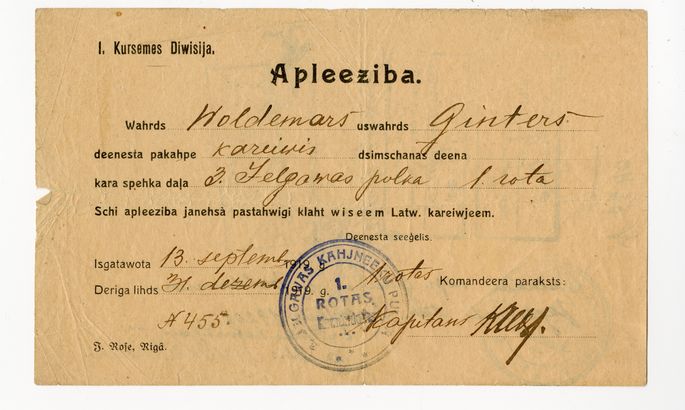 I. Kursemes Diwisija.
Apleeziba.
Wahrds Woldemars uswahrds Ginters
deenesta pakahpe kareiwis dsimschanas deena
kara spehka daļa 3. Jelgawas pulka 1. rota
Schi apleeziba janehsà pastahwigi klaht wiseem Latw. kareiwjeem.
Deenesta seegelis.
Isgatawota 13. septembr 1919. g.
Deriga lihds 31. dezemb 1919. g. 1. rotas Komandeera paraksts:
JELGAWAS KAHJNEEKU
1.
ROTAS
№ 455. Kapitans
J. Rose, Rigâ.